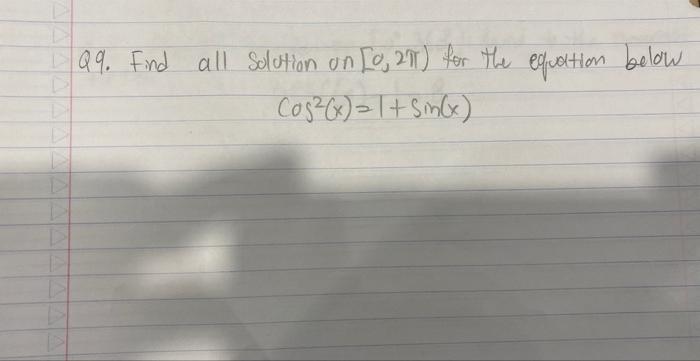 Q9. Find all Solution on [0, 2π) for the equation below
Cos²(x) = 1 + Sin(x)